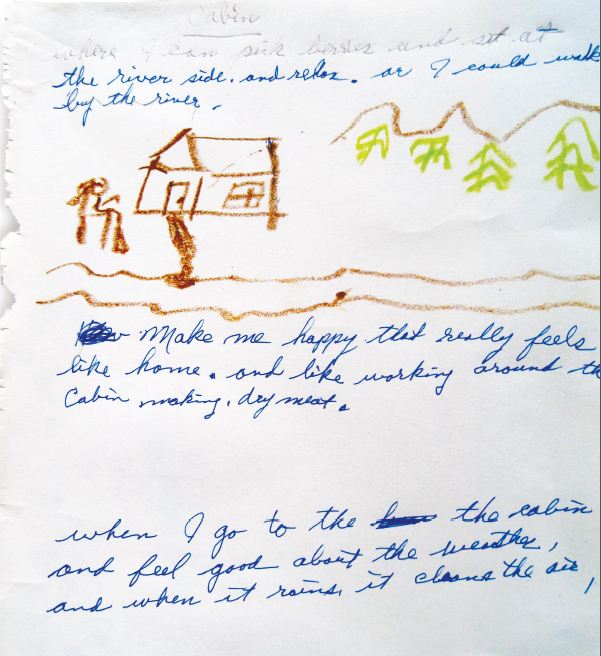 Cabin
where I can pick berries and set at
the river side. and relax. or I could walk
by the river.
Make me happy that really feels
like home. and like working around th
Cabin making. dry meat.
when I go to the the cabin
and feel good about the weather,
and when it rains, it cleans the air,